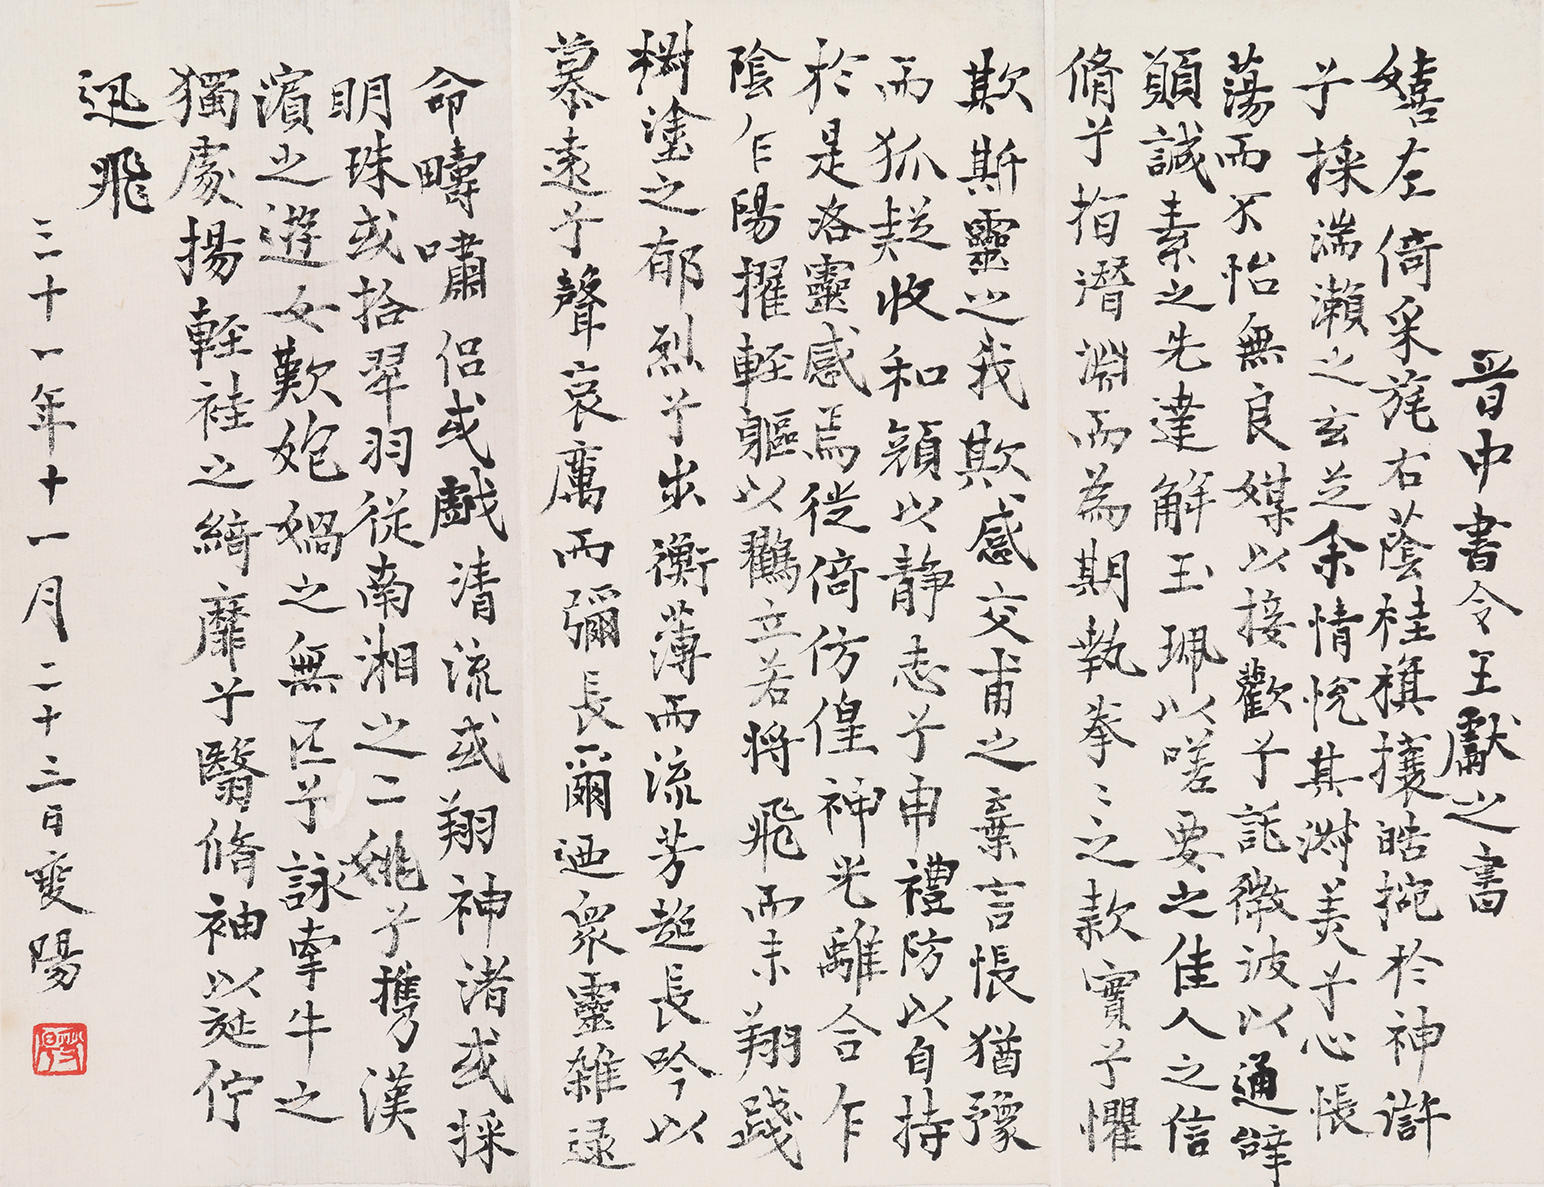 晉中書令王獻之書
嬉左倚采旄右蔭桂旗攘皓捥於神滸
兮採湍瀨之玄芝余情悅其淋美兮心悵
蕩而不怡無良媒以接歡兮託微波以通辭
願誠素之先達解玉珮以
要之佳人之信
脩兮指潛淵而為期執拳〻之款實兮懼
欺斯靈之我欺感交甫之棄言悵猶豫
而狐疑收和顏以靜志兮申禮防以自持
於是洛靈感焉徙倚仿偟神光離合乍
陰乍陽擢輕軀以鶴立若將飛而未翔踐
椒塗之郁烈兮步衡薄而流芳超長吟以
慕遠兮聲哀厲而彌長爾迺眾靈雜遝
命疇嘯侶或戲清流或翔神渚或採
明珠或拾翠羽從南湘之二姚兮攜漢
濱之遊女歎匏媧之無匹兮詠牽牛之
獨處揚輕袿之綺靡兮翳脩袖以延佇
迅飛
三十一年十一月二十三日燮陽